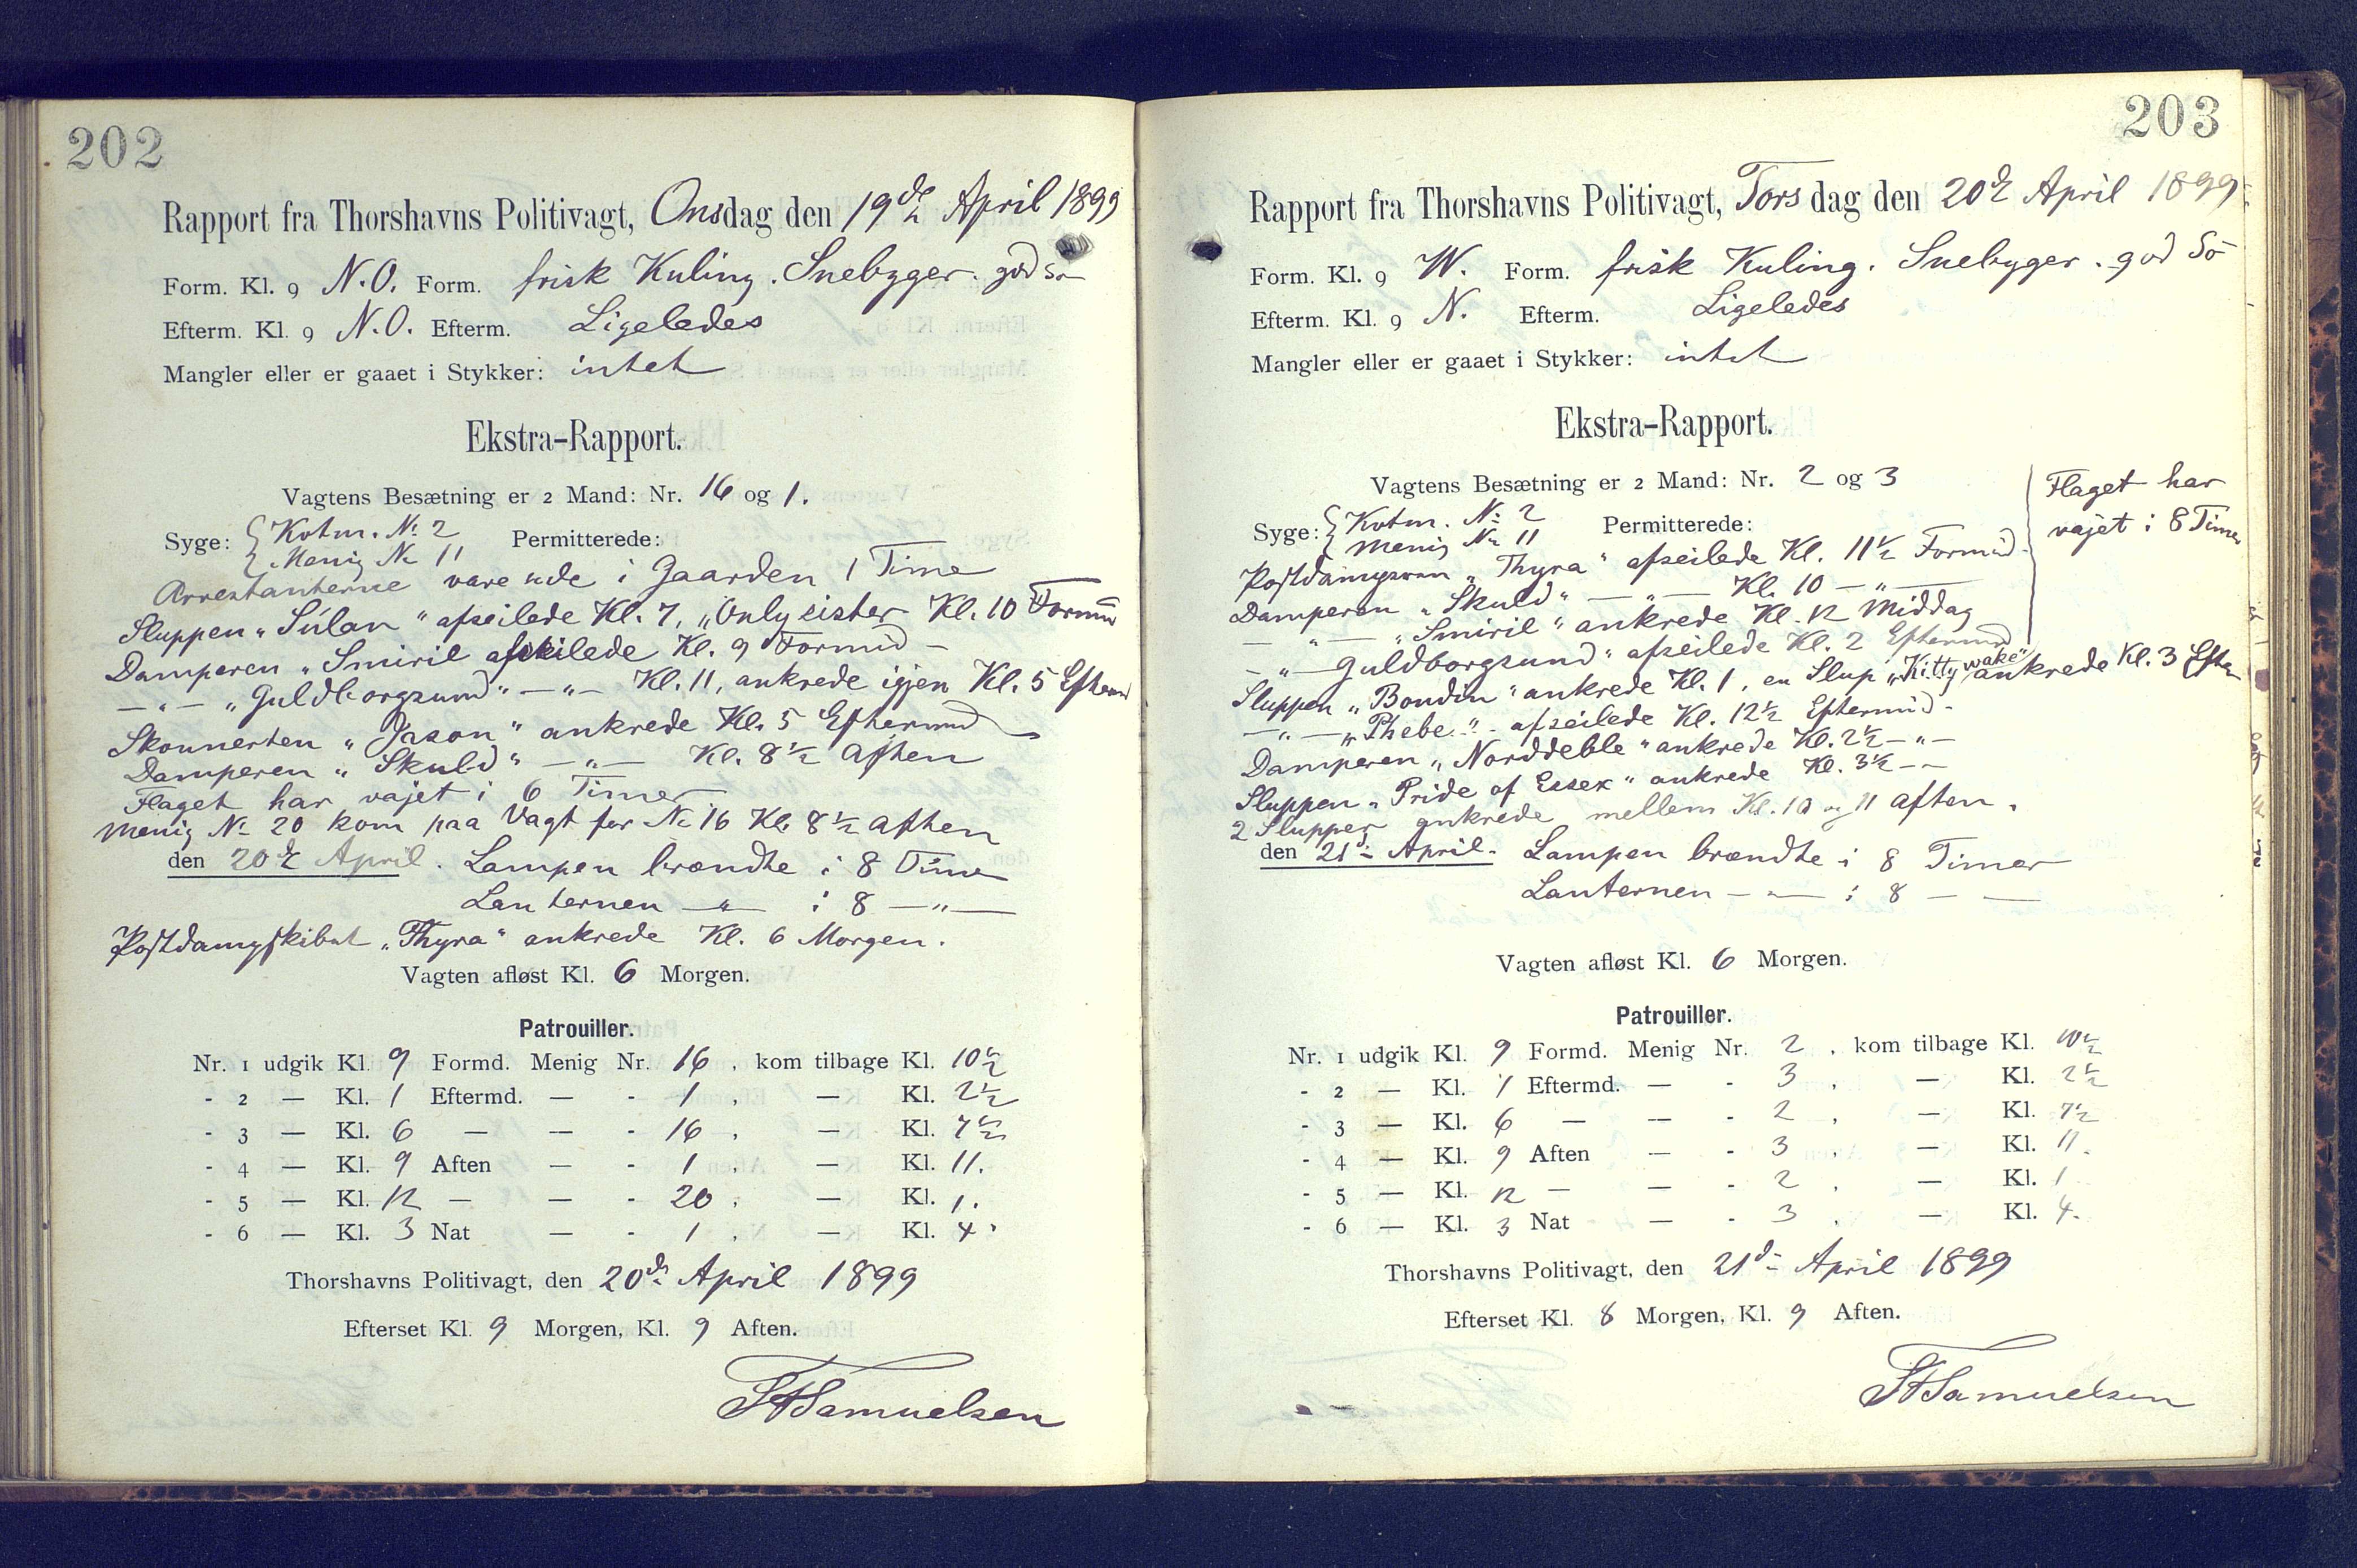 202
Rapport fra Thorshavns Politivagt, Onsdag den 19de April 1899
Form. Kl. 9 N.O. Form. frisk Kuling. Snebyger. god Sø
Efterm. Kl. 9 N.O. Efterm. Ligeledes
Mangler eller er gaaet i Stykker: intet
Ekstra-Rapport.
Vagtens Besætning er 2 Mand: Nr. 16 og 1.
Syge: { Kotm. No 2 Permitterede:
{ Menig No 11
Arrestanterne vare ude i Gaarden 1 Time
Sluppen „Súlan" afseilede Kl. 7, „Only sister Kl. 10 Formid
Damperen „Smiril afseilede Kl. 9 Formid –
– „ – „Guldborgsund" – „ – Kl. 11, ankrede igjen Kl. 5 Efterm
Skonnerten „Jason" ankrede Kl. 5 Eftermid
Damperen „Skuld" – „ – Kl. 8½ Aften
Flaget har vajet i 6 Timer
Menig No 20 kom paa Vagt for No 16 Kl. 8½ Aften
den 20de April. Lampen brændte i 8 Timer
Lanternen – „ – i 8 – „ –
Postdampskibet „Thyra" ankrede Kl. 6 Morgen.
Vagten afløst Kl. 6 Morgen.
Patrouiller.
Nr. 1 udgik Kl. 9 Formd. Menig Nr. 16, kom tilbage Kl. 10½
- 2 — Kl. 1 Eftermd. — - 1, — Kl. 2½
- 3 — Kl. 6 — — - 16, — Kl. 7½
- 4 — Kl. 9 Aften — - 1, — Kl. 11.
- 5 — Kl. 12 — — - 20, — Kl. 1.
- 6 — Kl. 3 Nat — - 1, — Kl. 4.
Thorshavns Politivagt, den 20de April 1899
Efterset Kl. 9 Morgen, Kl. 9 Aften.
Samuelsen
203
Rapport fra Thorshavns Politivagt, Torsdag den 20de April 1899
Form. Kl. 9 W. Form. frisk Kuling. Snebyger. god Sø
Efterm. Kl. 9 N. Efterm. Ligeledes
Mangler eller er gaaet i Stykker: intet
Ekstra-Rapport.
Vagtens Besætning er 2 Mand: Nr. 2 og 3
Flaget har
vajet i 8 Timer
Syge: { Kotm. No 2 Permitterede:
{ Menig No 11
Postdamperen „Thyra" afseilede Kl. 11½ Formid.
Damperen „Skuld" – „ – Kl. 10 – „ –
– „ – „Smiril" ankrede Kl. 12 Middag
– „ – Guldborgsund" afseilede Kl. 2 Eftermid
Sluppen „Bondin" ankrede Kl. 1, en Slup „Kittywake" ankrede Kl. 3 Efter
– „ – „Phebe" afseilede Kl. 12½ Eftermid –
Damperen „Norddeble" ankrede Kl. 2½ – „ –
Sluppen „Pride of Essex" ankrede Kl. 3½ – –
2 Slupper ankrede mellem Kl. 10 og 11 Aften.
den 21de April. Lampen brændte i 8 Timer
Lanternen – „ – i 8 – –
Vagten afløst Kl. 6 Morgen.
Patrouiller.
Nr. 1 udgik Kl. 9 Formd. Menig Nr. 2, kom tilbage Kl. 10½
- 2 — Kl. 1 Eftermd. — - 3, — Kl. 2½
- 3 — Kl. 6 — — - 2, — Kl. 7½
- 4 — Kl. 9 Aften — - 3, — Kl. 11.
- 5 — Kl. 12 — — - 2, — Kl. 1
- 6 — Kl. 3 Nat — - 3, — Kl. 4.
Thorshavns Politivagt, den 21de April 1899
Efterset Kl. 8 Morgen, Kl. 9 Aften.
Samuelsen